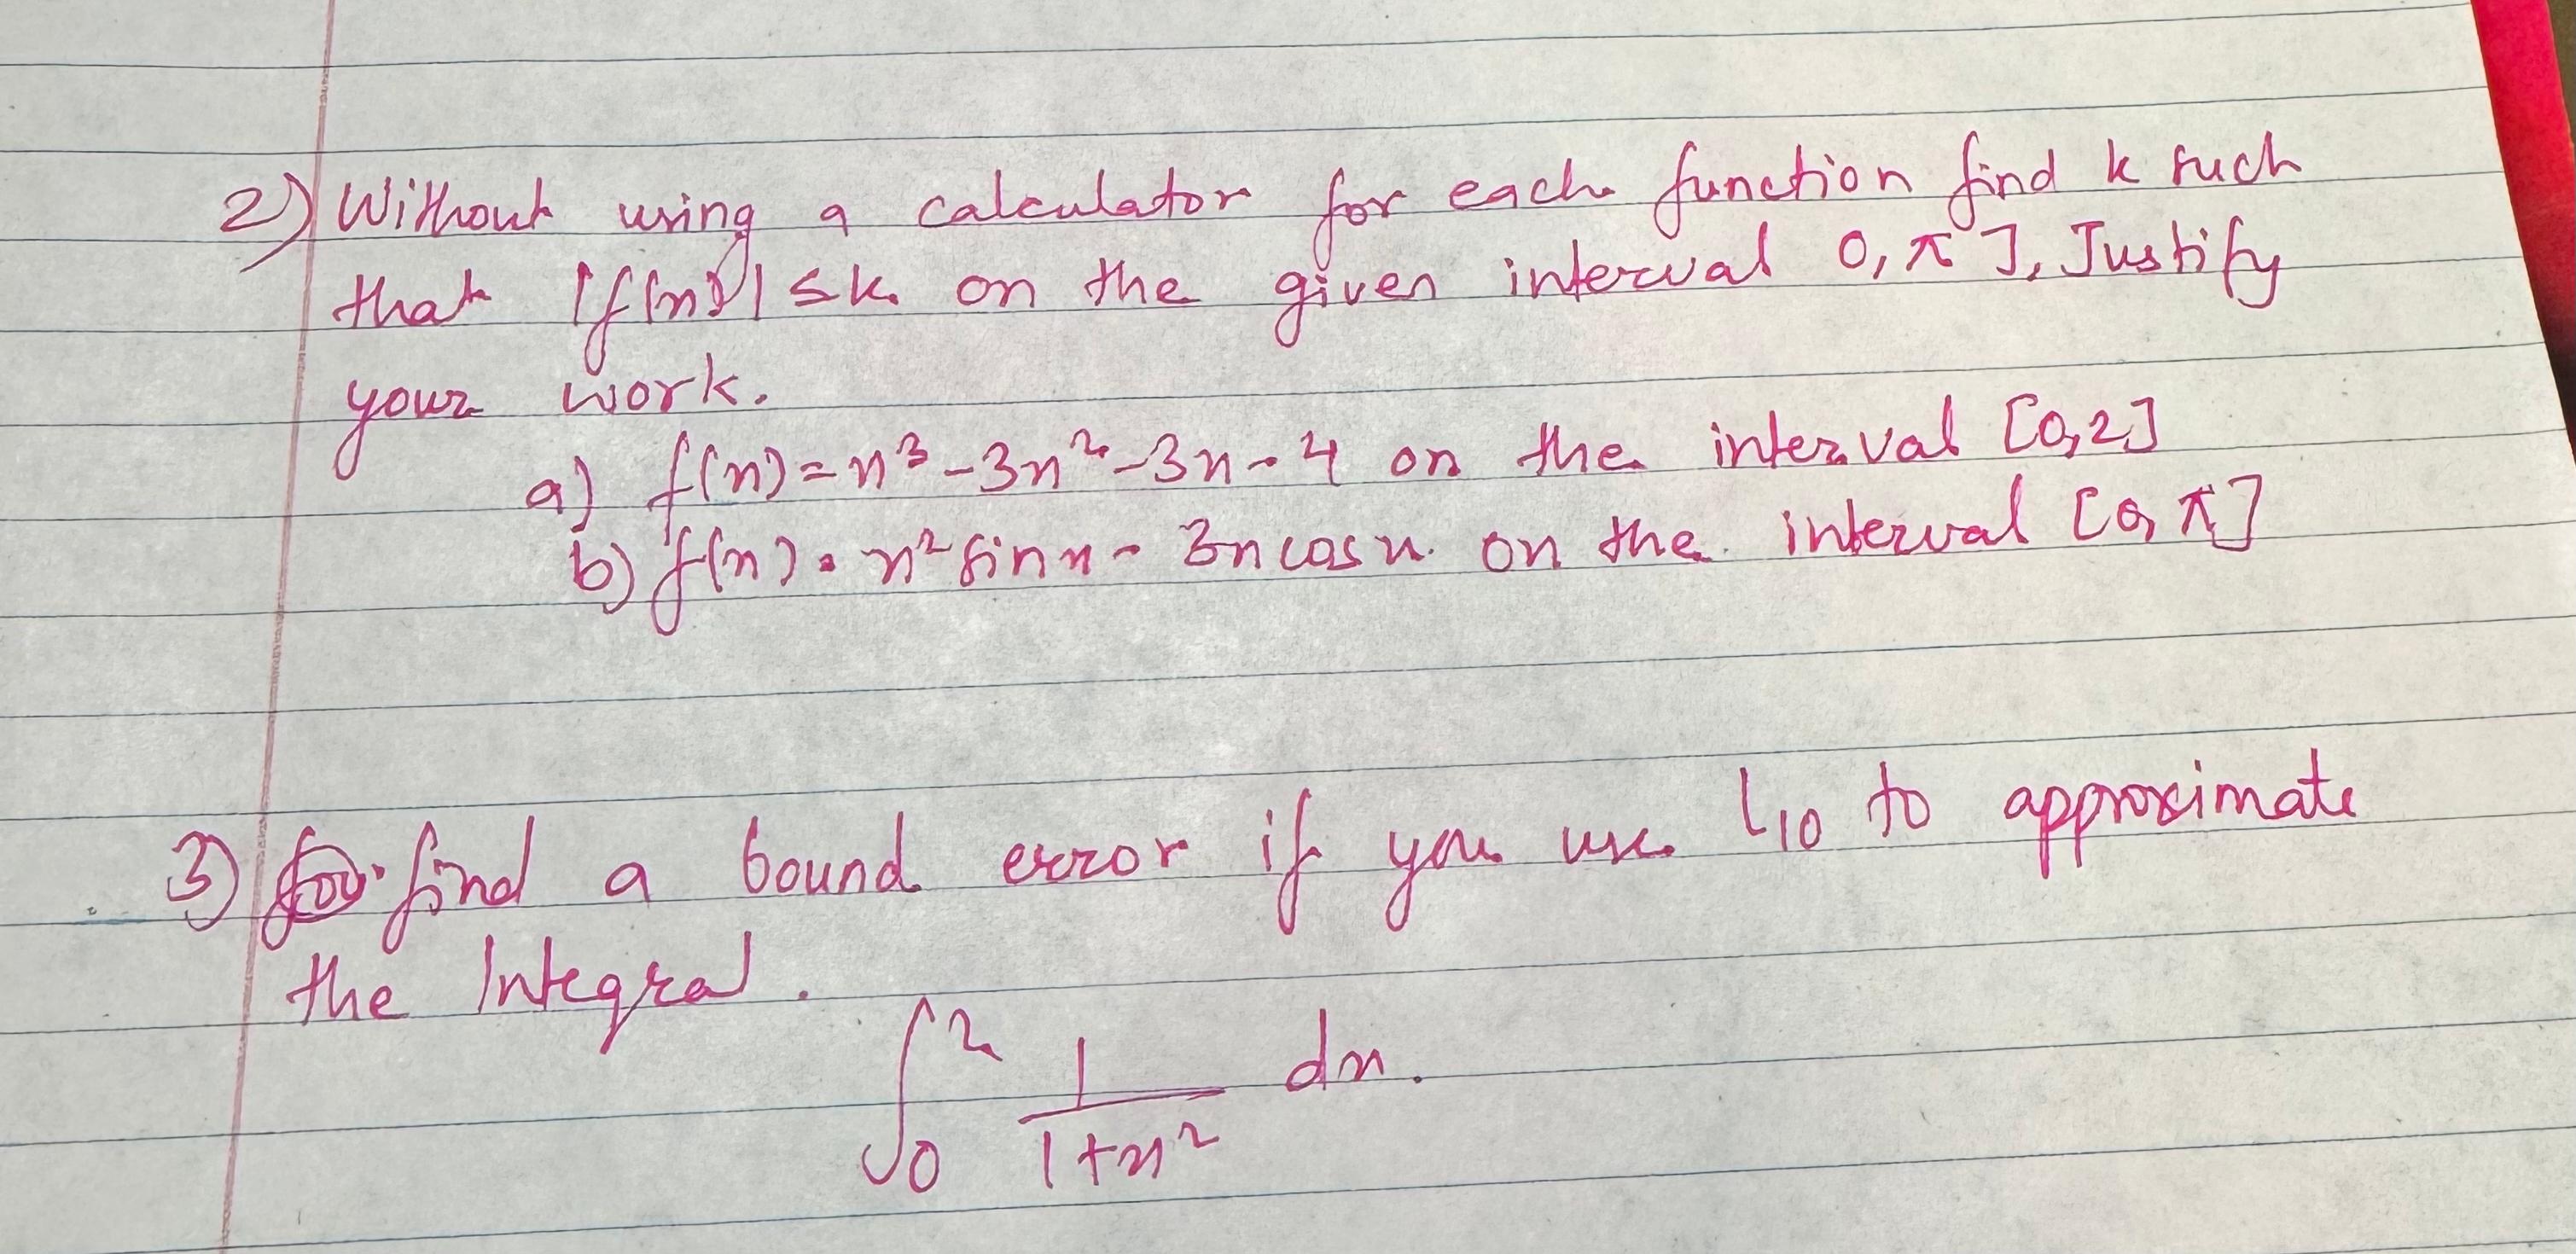 2) Without using a calculator for each function find k such
that |f(n)| ≤ k on the given interval 0, π], Justify
your work.
a) f(n) = n³ - 3n² - 3n - 4 on the interval [0,2]
b) f(n) = n² sin n - 3n cos n on the interval [0, π]
3) find a bound error if you use L₁₀ to approximate
the Integral.
∫₀² 1/(1+n²) dn.